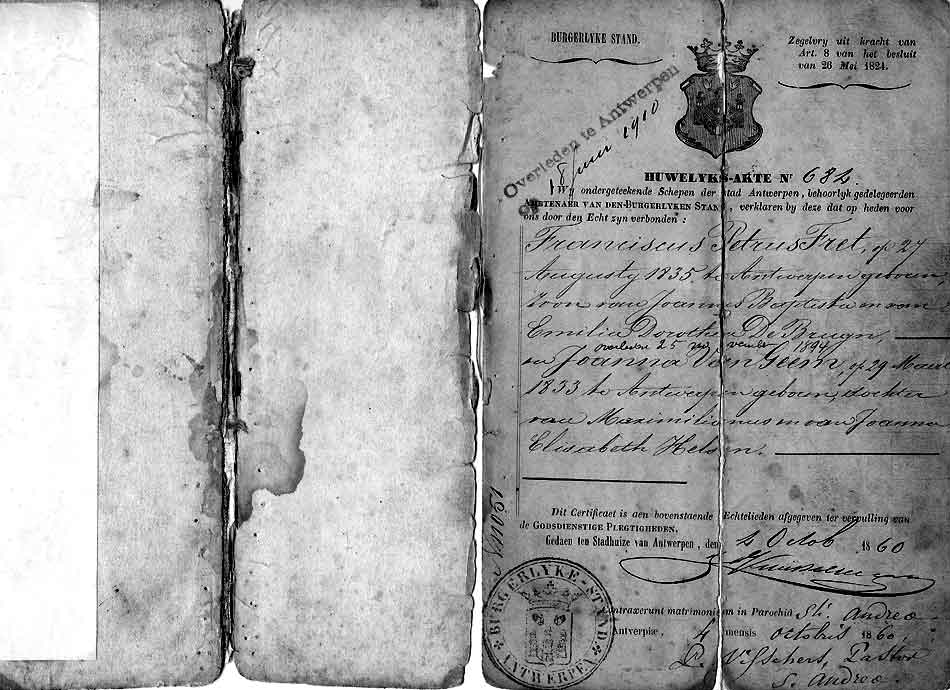 BURGERLYKE STAND.
Zegelvry uit kracht van
Art. 8 van het besluit
van 26 Mei 1824.
Overleden te Antwerpen
op 18 1910
HUWELYKS-AKTE Nº 682
Wy ondergeteekende Schepen der stad Antwerpen, behoorlyk gedelegeerden
AMBTENAER VAN DEN BURGERLYKEN STAND, verklaren by deze dat op heden voor
ons door den Echt zyn verbonden:
Franciscus Petrus Fret, op 27
Augusty 1835 te Antwerpen geboren,
Zoon van Joannes Baptista en van
Emilia Dorothea De Bruyn,
overleden 25 november 1894
en Joanna Van Geem, op 29 Maart
1833 te Antwerpen geboren, dochter
van Maximilianus en van Joanna
Elisabeth Helsen.
Dit Certificaet is aen bovenstaende Echtelieden afgegeven ter vervulling van
de GODSDIENSTIGE PLEGTIGHEDEN.
Gedaen ten Stadhuize van Antwerpen, den 4 Octob 1860
BURGERLYKE-STAND
ANTWERPEN
Contraxerunt matrimonium in Parochia Sti Andreae
Antwerpiæ, 4 mensis octobris 1860.
Pastor
S. Andreae.